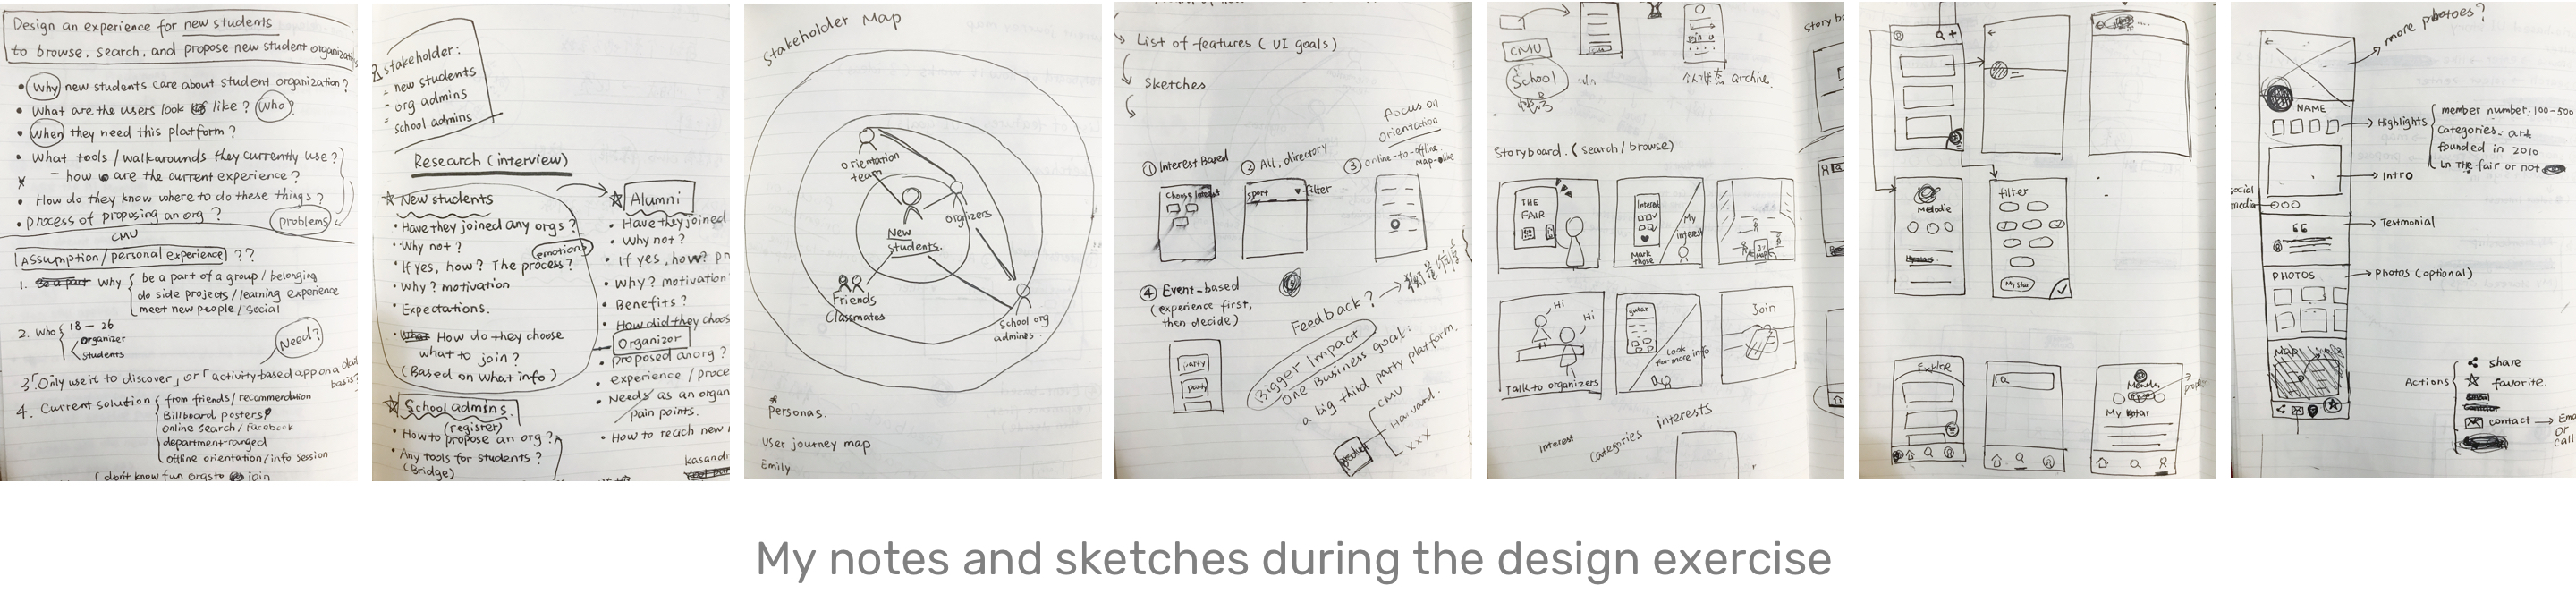 Design an experience for new students
to browse, search, and propose new student organizati
• Why new students care about student organization?
• What are the users look like? Who?
• When they need this platform?
• What tools / walkarounds they currently use?
- how are the current experience?
• How do they know where to do these things?
• process of proposing an org?
problems
CMU
Assumption/personal experience ??
1. Why
be a part of a group / belonging
do side projects / learning experience
meet new people / social
2. Who
18 - 26
organizer
students
Need?
3「Only use it to discover」or「activity-based app on a daily
basis?
4. Current solution
from friends / recommendation
Billboard posters
online search / facebook
department-ranged
offline orientation/info session
(don't know fun orgs to join
stakeholder:
- new students
- org admins
- school admins
Research (interview)
☆ New students
• Have they joined any orgs?
• Why not?
emotions
• If yes, how? The process?
• Why? motivation
• Expectations.
• How do they choose
what to join?
(Based on what info)
☆ School admins.
(register)
• How to propose an org?
• Any tools for students?
(Bridge)
☆ Alumni
• Have they joined
• Why not?
• If yes, how? pr
• Why? motivation
• Benefits?
• How did they choos
Organizor
• proposed an org?
• experience / proce
• Needs as an organ
pain points.
• How to reach new
kasandr
Stakeholder Map
orientation
team
organizers
New
students.
Friends
Classmates
School org
admins.
Personas.
User journey map
Emily
List of features (UI goals)
Sketches
Focus on
orientation
① Interest Based
② All, directory
③ online-to-offline
Map-like
Choose Interest
sport
filter
④ Event-based
(experience first,
then decide)
party
Feedback?
Bigger Impact
One Business goal:
a big third party platform.
CMU
Harvard.
xxx
product
CMU
School
archive.
Story b
Storyboard. (search/browse)
THE
FAIR
Interest
Mark
those
My
interest
Hi
Hi
Talk to organizers
guitar
Look
for more info
Join
Interest
Categories
interests
Melodie
filter
My star
Explore
My star
more photoes?
NAME
Highlights
member number: 100-500
categories: art
founded in 2010
In the fair or not
Intro
social
media
Testmonial
PHOTOS
Photos (optional)
Map
Actions
share
favorite.
contact
Ema
or
call
My notes and sketches during the design exercise